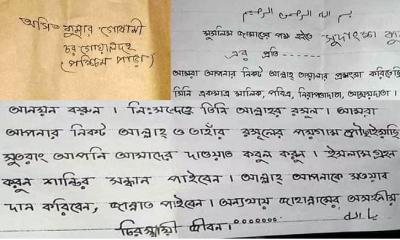 অসিত কুমার গোস্বামী
চর গোয়ালদহ
(পশ্চিম পাড়া)
মুসলিম জামাতের পক্ষ হইতে
এর প্রতি
আমরা আপনার নিকট আল্লাহ তায়ালার প্রশংসা করিতেছি
তিনি একমাত্র মালিক, পবিত্র, নিরাপত্তাদাতা,
আনয়ন করুন । নিঃসন্দেহে তিনি আল্লাহর রসুল । আমরা
আপনার নিকট আল্লাহ ও তাহাঁর রসুলের পয়গাম পৌঁছাইয়াছি
সুতরাং আপনি আমাদের দাওয়াত কবুল করুন । ইসলাম গ্রহন
করুন শান্তির সন্ধান পাইবেন । আল্লাহ আপনাকে সওয়াব
দান করিবেন, জান্নাত পাইবেন । অন্যথায় জাহান্নামের অসহনীয়
চিরস্থায়ী জীবন ।